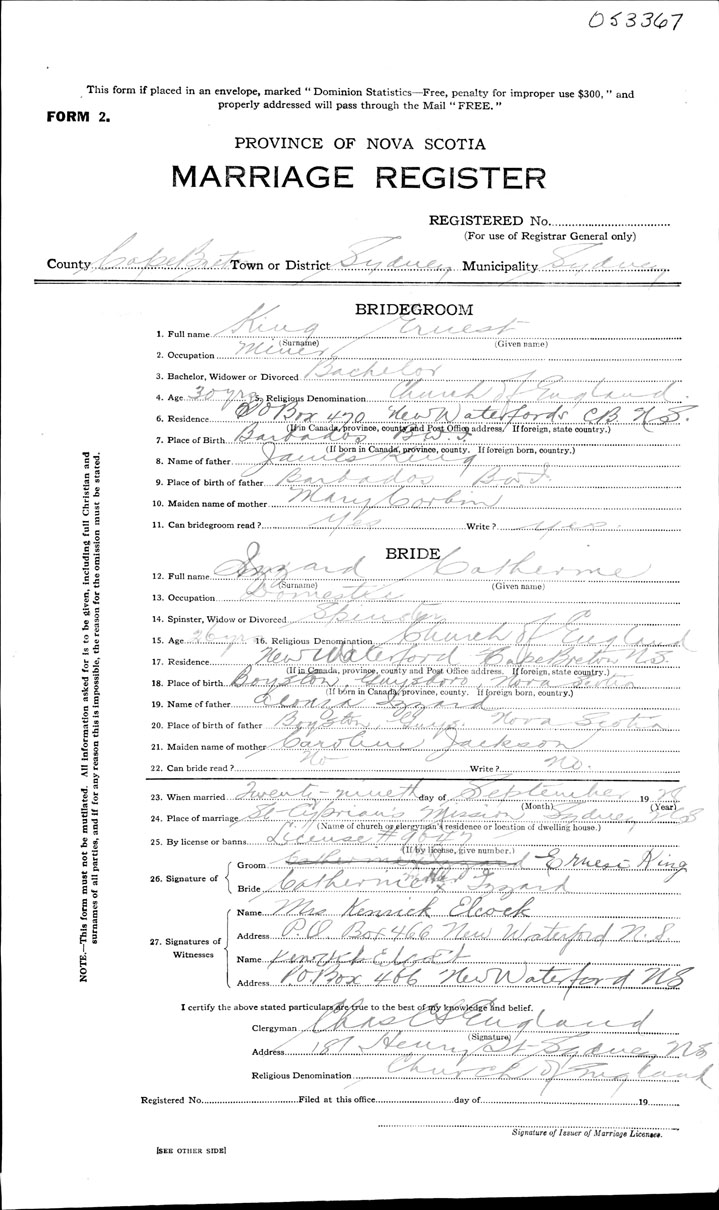 053367
This form if placed in an envelope, marked " Dominion Statistics—Free, penalty for improper use $300, " and
properly addressed will pass through the Mail " FREE. "
FORM 2.
PROVINCE OF NOVA SCOTIA
MARRIAGE REGISTER
REGISTERED No.
(For use of Registrar General only)
County Cape Breton Town or District Sydney Municipality Sydney
BRIDEGROOM
1. Full name King Ernest
(Surname) (Given name)
2. Occupation Miner
3. Bachelor, Widower or Divorced Bachelor
4. Age 30 yrs 5. Religious Denomination Church of England.
6. Residence P O Box 470 New Waterford CB NS.
(If in Canada, province, county and Post Office address. If foreign, state country.)
7. Place of Birth Barbados B.W.I
(If born in Canada, province, county. If foreign born, country.)
8. Name of father James King
9. Place of birth of father Barbados B.W.I.
10. Maiden name of mother Mary Corbin
11. Can bridegroom read ? Yes Write ? yes.
BRIDE
12. Full name Izzard Catherine
(Surname) (Given name)
13. Occupation Domestic
14. Spinster, Widow or Divorced Spinster
15. Age 26 yrs 16. Religious Denomination Church of England
17. Residence New Waterford Cape Breton N.S.
(If in Canada, province, county and Post Office address. If foreign, state country.)
18. Place of birth Boyston Guysboro Nova Scotia
(If born in Canada, province, county. If foreign born, country.)
19. Name of father Alonza Izzard
20. Place of birth of father Boyston Guys. Nova Scotia
21. Maiden name of mother Caroline Jackson
22. Can bride read ? No Write ? No.
23. When married Twenty-nineth day of September 19
(Month) (Year)
24. Place of marriage St Cyprian's Mission Sydney NS
(Name of church or clergyman's residence or location of dwelling house.)
25. By license or banns License #
(If by license, give number.)
26. Signature of
Groom Ernest King
Bride Catherine Izzard
27. Signatures of Witnesses
Name Mrs Kenrick Elcock
Address P.O. Box 466 New Waterford N.S.
Name Kenrick Elcock
Address P.O Box 466 New Waterford NS
I certify the above stated particulars are true to the best of my knowledge and belief.
Clergyman Chas England
(Signature)
Address 187 Henry St- Sydney NS
Religious Denomination Church of England
Registered No. Filed at this office day of 19
Signature of Issuer of Marriage Licenses.
[SEE OTHER SIDE]
NOTE.—This form must not be mutilated. All information asked for is to be given, including full Christian and
surnames of all parties, and if for any reason this is impossible, the reason for the omission must be stated.